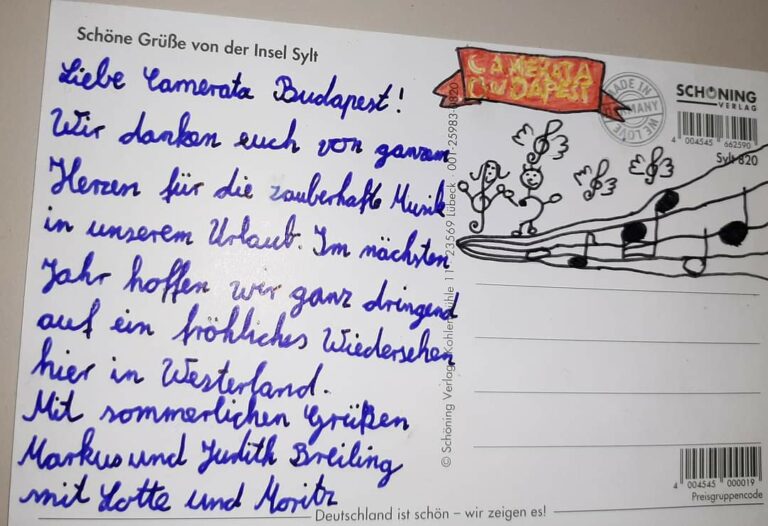 Schöne Grüße von der Insel Sylt
Liebe Camerata Budapest!
Wir danken euch von ganzem
Herzen für die zauberhafte Musik
in unserem Urlaub. Im nächsten
Jahr hoffen wir ganz dringend
auf ein fröhliches Wiedersehen
hier in Westerland.
Mit sommerlichen Grüßen
Markus und Judith Breiling
mit Lotte und Moritz
Deutschland ist schön – wir zeigen es!
CAMERATA
BUDAPEST
MADE IN
GERMANY
WE LOVE
SCHÖNING
VERLAG
4 004545 662590
Sylt 820
© Schöning Verlag · Kohlenmühle 11 · 23569 Lübeck · 001-25983-0820
4 004545 000019
Preisgruppencode